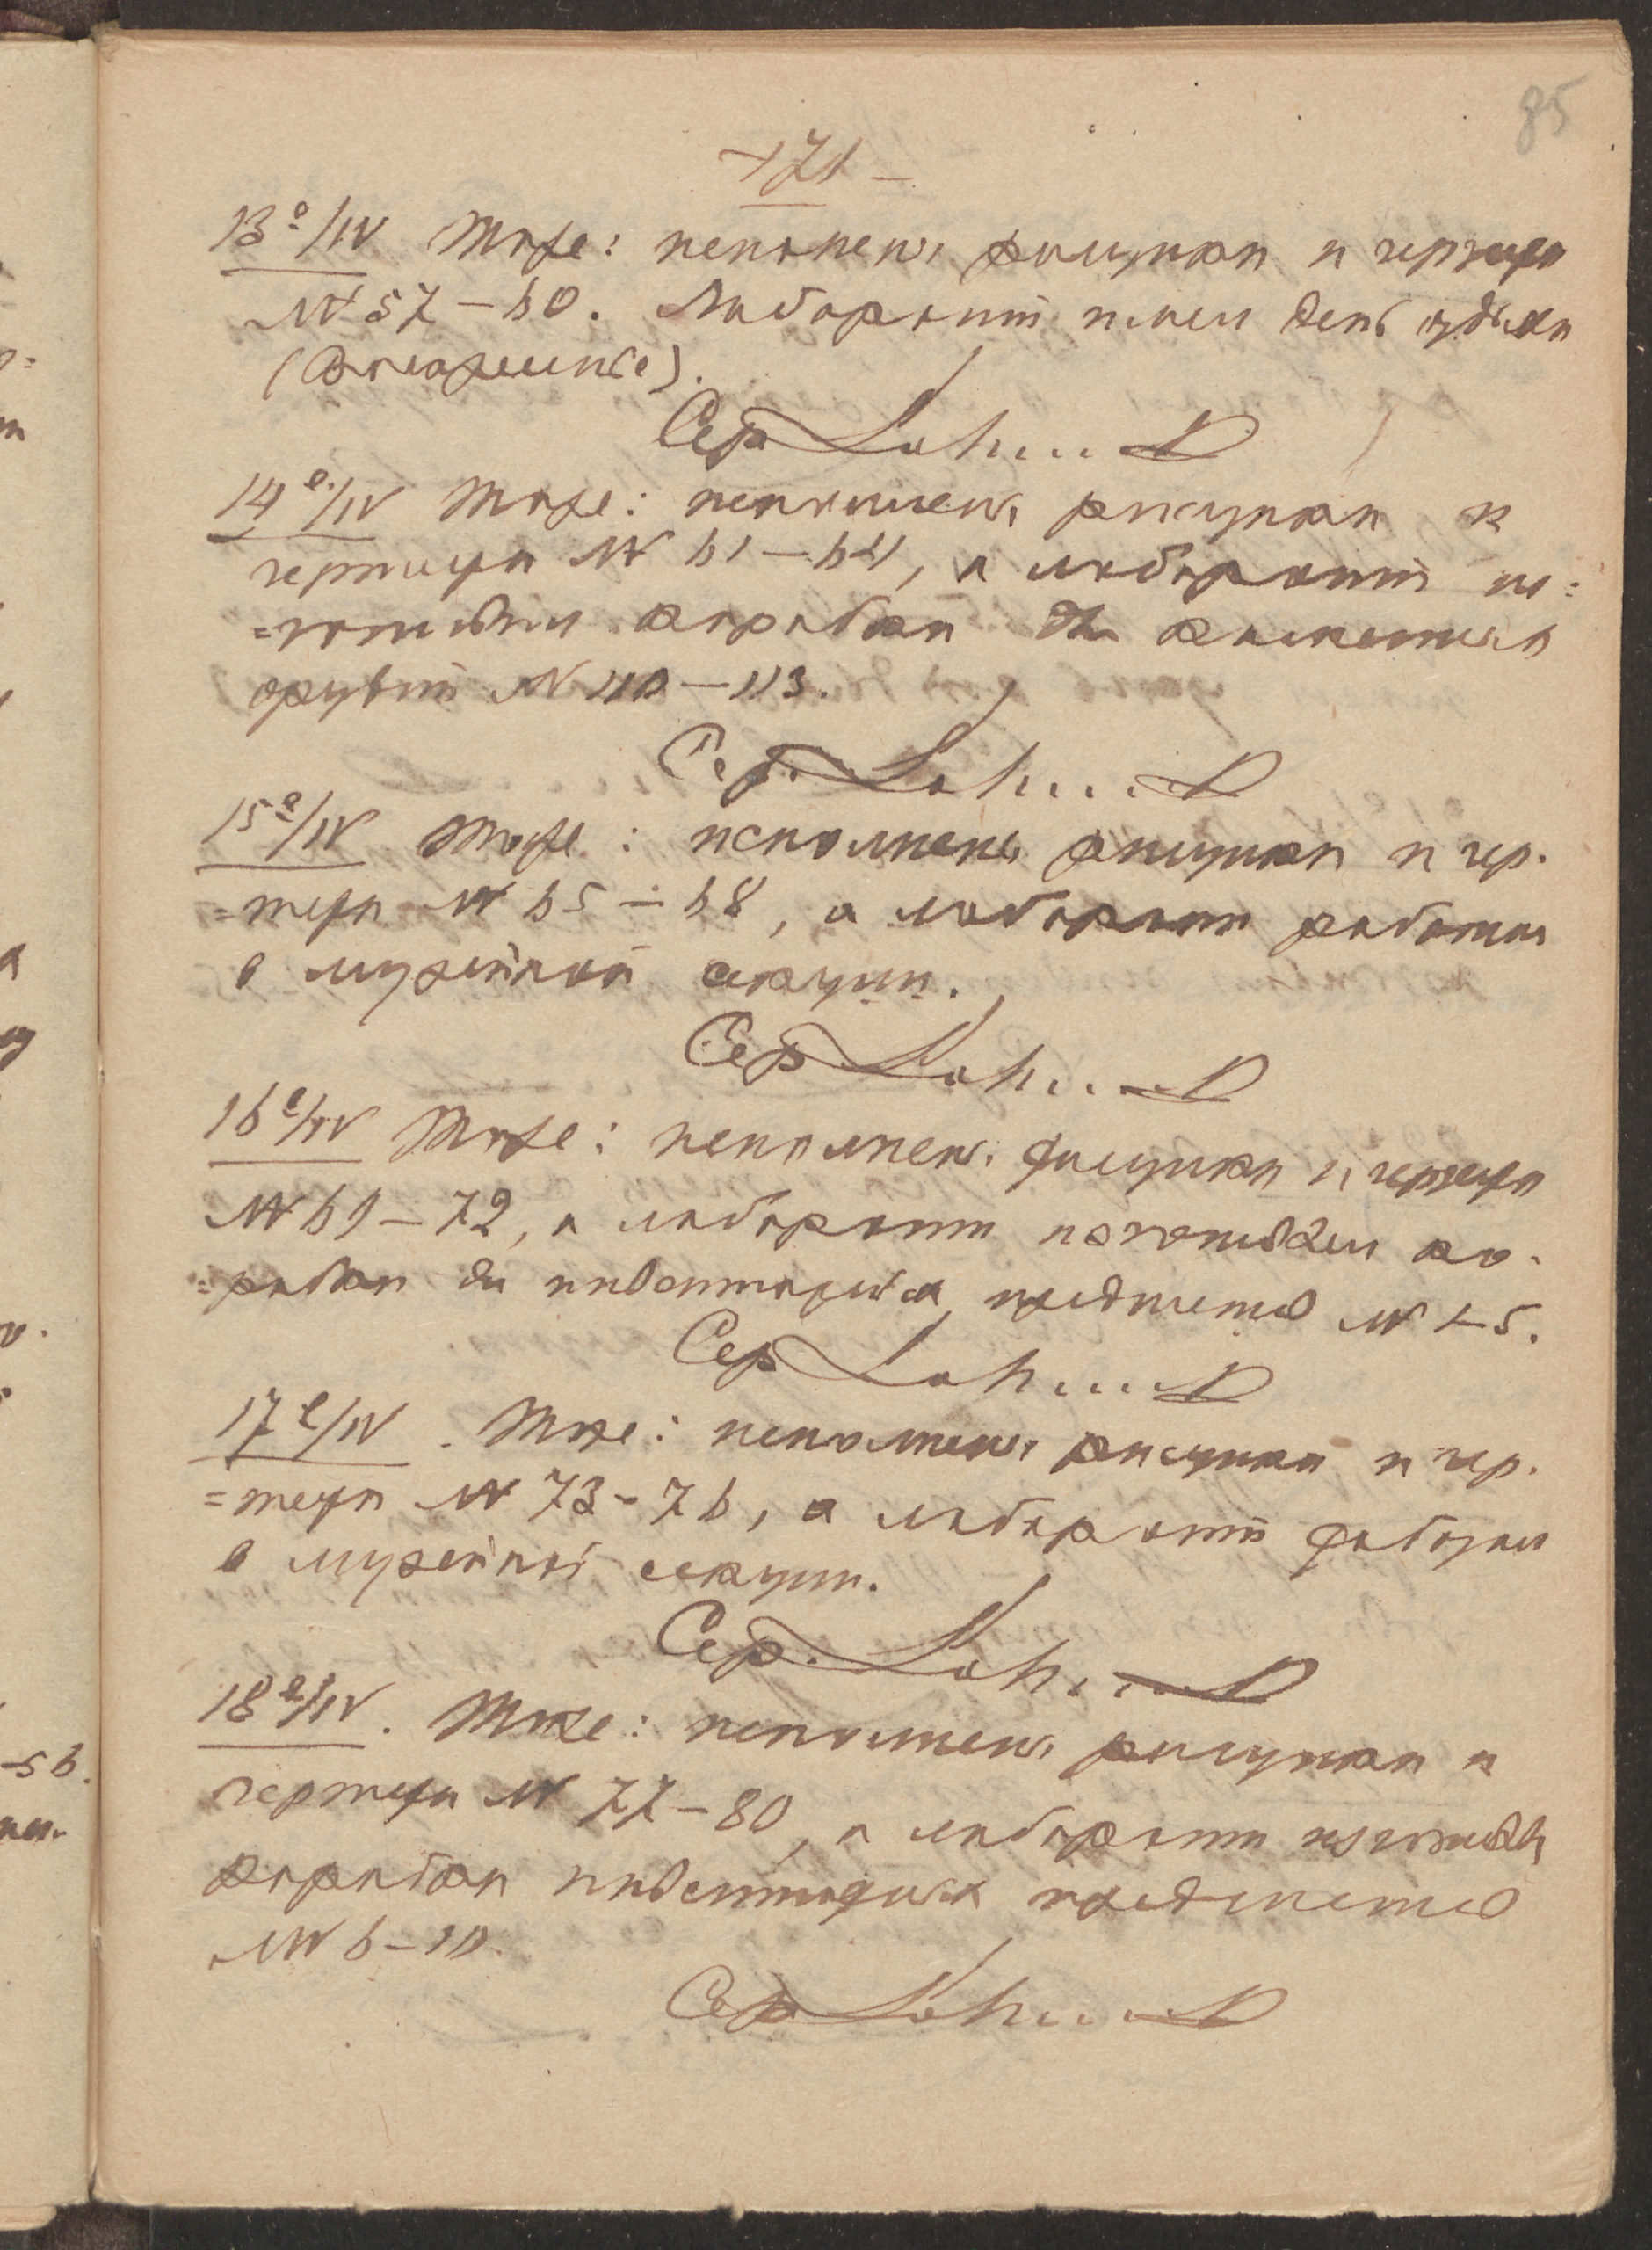 85
-171-
13º/IV Тоже: исполнены рисунки и чертежи
№ 57-60. Лаборант имел день отдыха
(Воскресенье).
Сер
14е/IV Тоже: исполнены рисунки и
чертежи № 61-64, а лаборант из=
=готовил коробки для каменных
орудий № 110-113.
Сер.
15е/IV Тоже: исполнены рисунки и чер.
=тежи № 65-68, а лаборант работал
в музейной секции.
Сер
16е/IV Тоже: исполнены рисунки и чертежи
№ 69-72, а лаборант изготовил ко.
=робки для инвентарных предметов № 1-5.
Сер
17е/IV. Тоже: исполнены рисунки и чер.
=тежи № 73-76, а лаборант работал
в музейной секции.
Сер.
18е/IV. Тоже: исполнены рисунки и
чертежи № 77-80, а лаборант изготовил
коробки инвентарных предметов
№ 6-10.
Сер
-56.